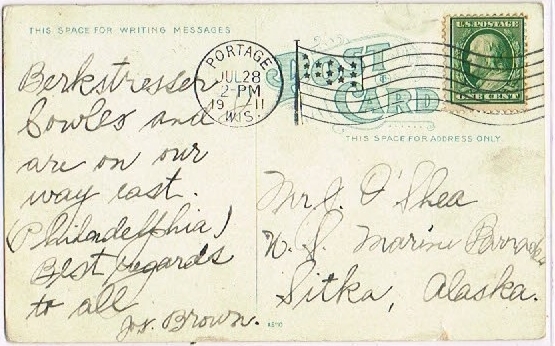 THIS SPACE FOR WRITING MESSAGES
Berkstresser
Cowles and
are on our
way east.
(Philadelphia)
Best regards
to all
Jos. Brown.
PORTAGE
JUL 28
2-PM
19 11
WIS.
POST
CARD
U.S. POSTAGE
ONE CENT
THIS SPACE FOR ADDRESS ONLY
Mr. J. O'Shea
U. S. Marine Barracks
Sitka, Alaska.